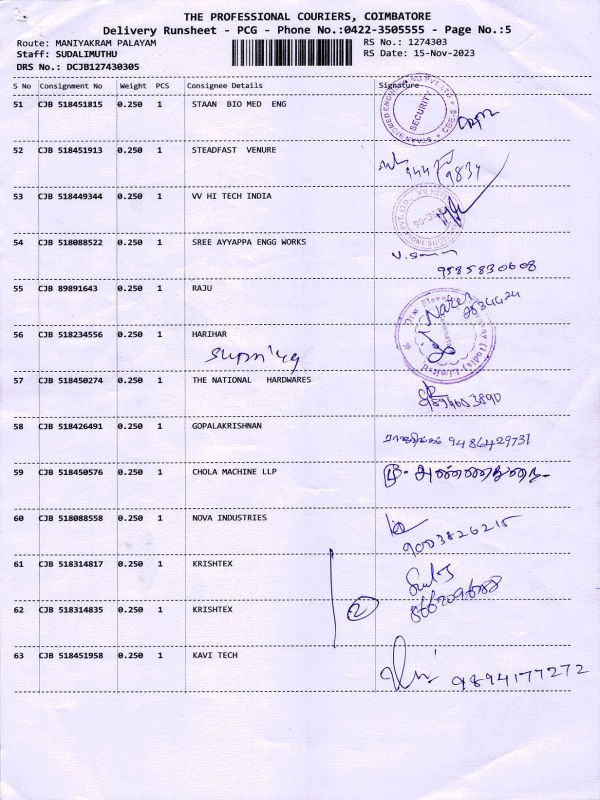 THE PROFESSIONAL COURIERS, COIMBATORE
Delivery Runsheet - PCG - Phone No.:0422-3505555 - Page No.:5
Route: MANIYAKRAM PALAYAM RS No.: 1274303
Staff: SUDALIMUTHU RS Date: 15-Nov-2023
DRS No.: DCJB127430305
S No Consignment No Weight PCS Consignee Details Signature
51 CJB 518451815 0.250 1 STAAN BIO MED ENG
SECURITY
52 CJB 518451913 0.250 1 STEADFAST VENURE
53 CJB 518449344 0.250 1 VV HI TECH INDIA
54 CJB 518088522 0.250 1 SREE AYYAPPA ENGG WORKS
9585830608
55 CJB 89891643 0.250 1 RAJU
56 CJB 518234556 0.250 1 HARIHAR
57 CJB 518450274 0.250 1 THE NATIONAL HARDWARES
58 CJB 518426491 0.250 1 GOPALAKRISHNAN
9486429731
59 CJB 518450576 0.250 1 CHOLA MACHINE LLP
60 CJB 518088558 0.250 1 NOVA INDUSTRIES
9003826215
61 CJB 518314817 0.250 1 KRISHTEX
2
62 CJB 518314835 0.250 1 KRISHTEX
63 CJB 518451958 0.250 1 KAVI TECH
9894177272